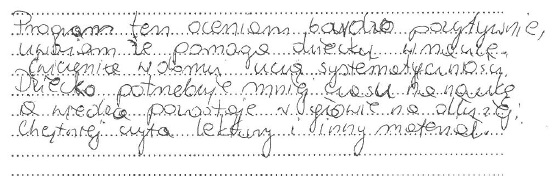 Program ten oceniam bardzo pozytywnie,
uważam że pomaga dziecku w nauce.
Ćwiczenia w domu uczą systematyczności.
Dziecko potrzebuje mniej czasu na naukę
a wiedza pozostaje w głowie na dłużej.
Chętniej czyta lektury i inny materiał.